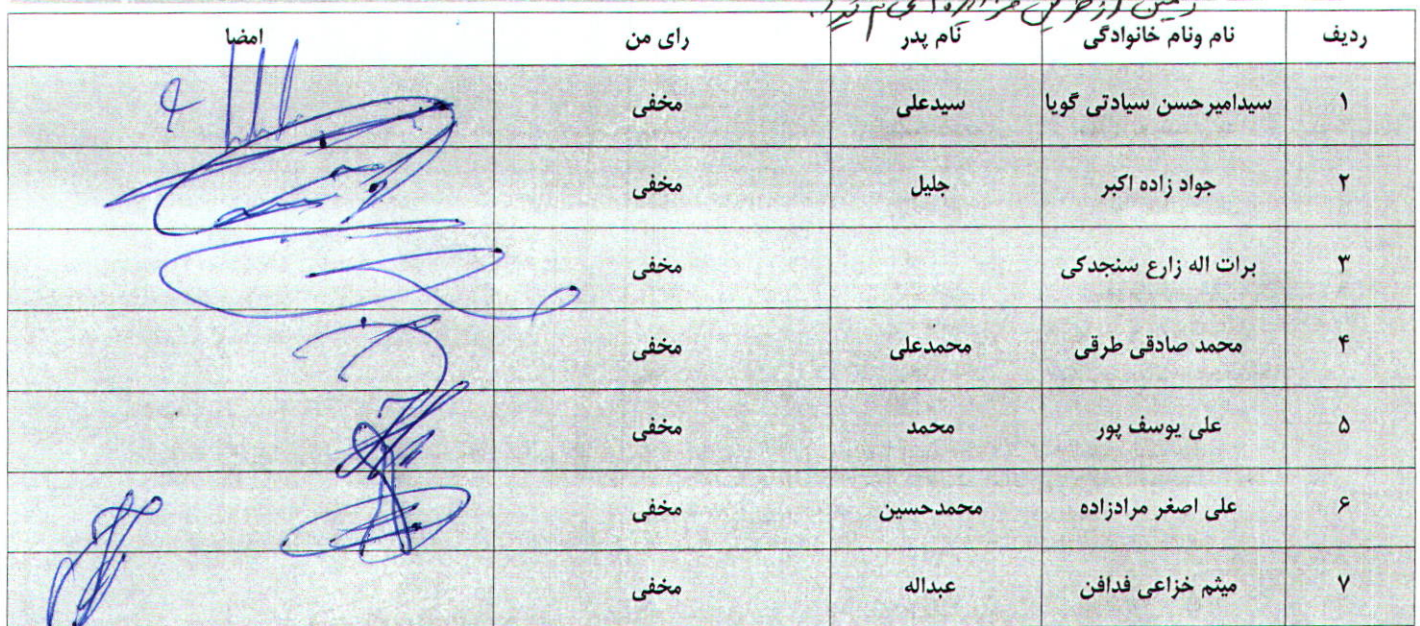 ردیف نام ونام خانوادگی نام پدر رای من امضا
۱ سیدامیرحسن سیادتی گویا سیدعلی مخفی
۲ جواد زاده اکبر جلیل مخفی
۳ برات اله زارع سنجدکی مخفی
۴ محمد صادقی طرقی محمدعلی مخفی
۵ علی یوسف پور محمد مخفی
۶ علی اصغر مرادزاده محمدحسین مخفی
۷ میثم خزاعی فدافن عبداله مخفی